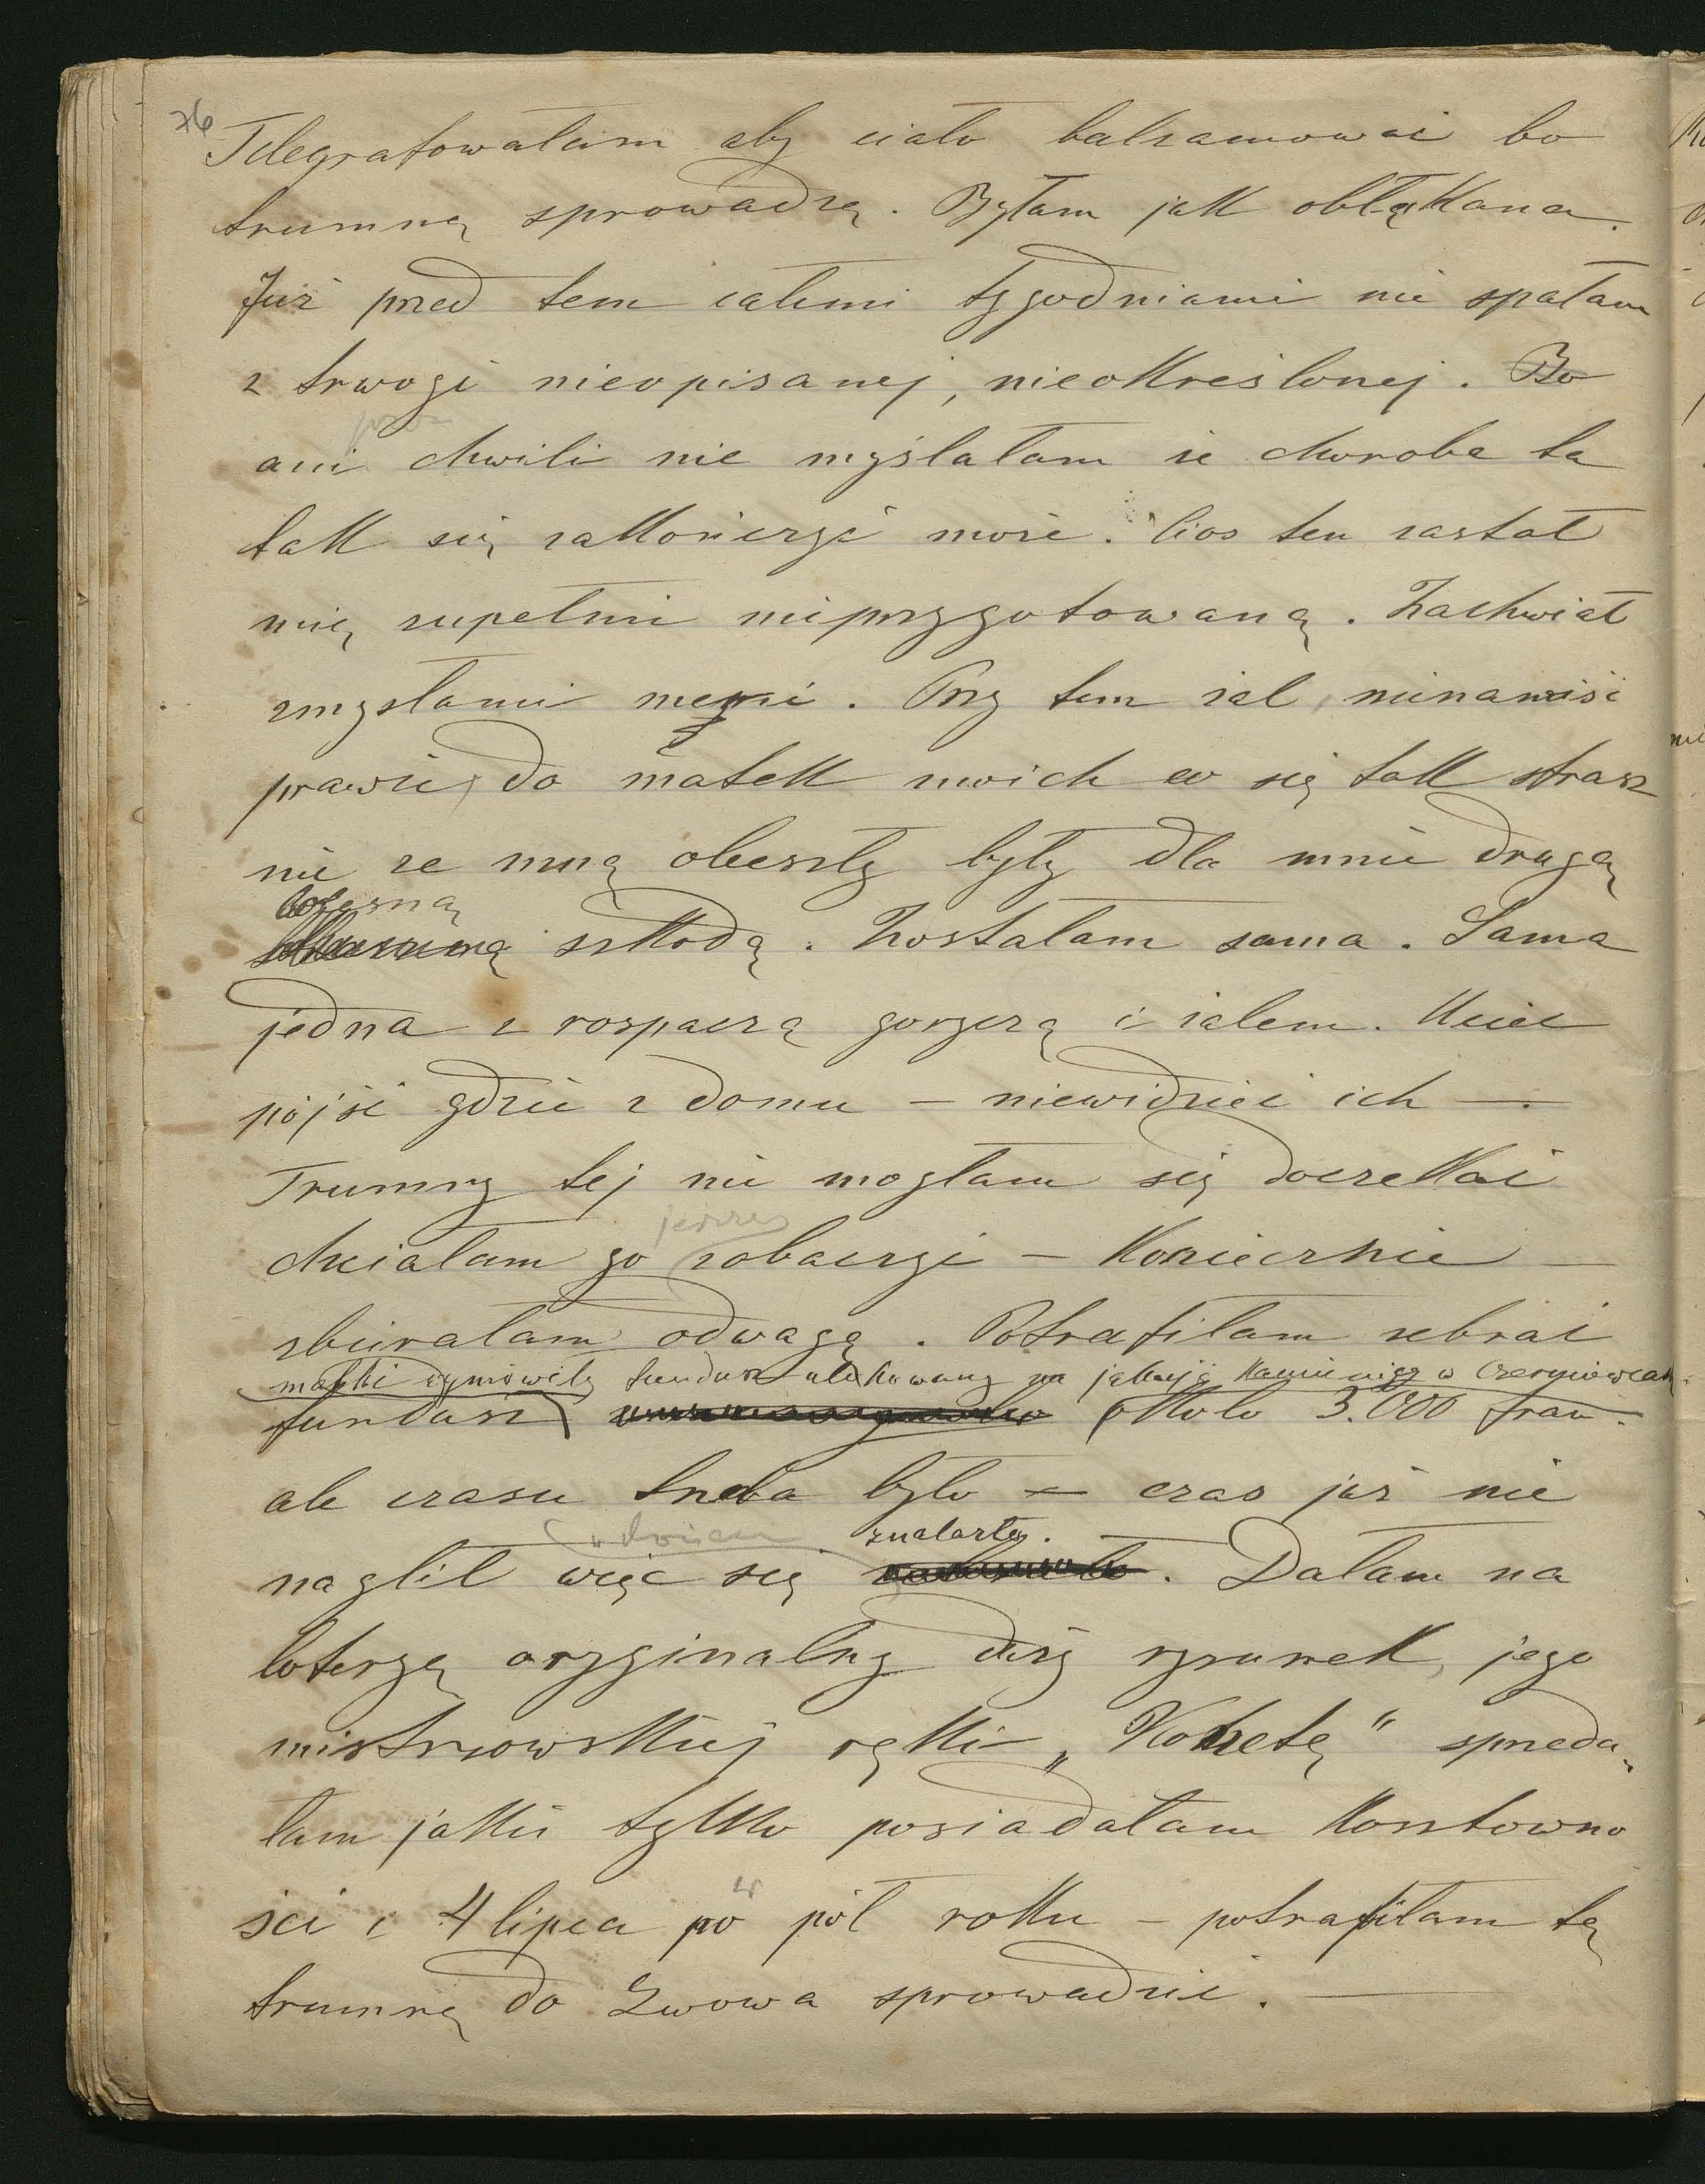 76
Telegrafowałam aby ciało balsamować bo
trumnę sprowadzę. Byłam jak obłąkana.
Już przed tem całemi tygodniami nie spałam
z trwogi nieopisanej, nieokreślonej. Bo
ani chwili nie myślałam że choroba ta
tak się zakończyć może. Cios ten zastał
mię zupełnie nieprzygotowaną. Zachwiał
zmysłami memi. Przy tem żal, nienawiść
prawie, do matek moich co się tak strasz
nie ze mną obeszły były dla mnie drugą
bolesną
szkodą. Zostałam sama. Sama
jedna z rospaczą goryczą i żalem. Uciec
pójść gdzie z domu – niewidzieć ich –.
Trumny tej nie mogłam się doczekać
jeszcze
chciałam go zobaczyć – Koniecznie –
zbierałam odwagę. Potrafiłam zebrać
matki wymówiły fundusz ulokowany na jakiejś kamienicy w Czerniowcach
fundusz około 3.000 fran.
ale czasu trzeba było – czas już nie
znalazły.
naglił więc się . Dałam na
loteryę oryginalny duży rysunek, jego
mistrzowskiej ręki „Kobietę" sprzeda„
łam jakie tylko posiadałam kosztowno
ści i 4 lipca po pół roku – potrafiłam tę
trumnę do Lwowa sprowadzić. –